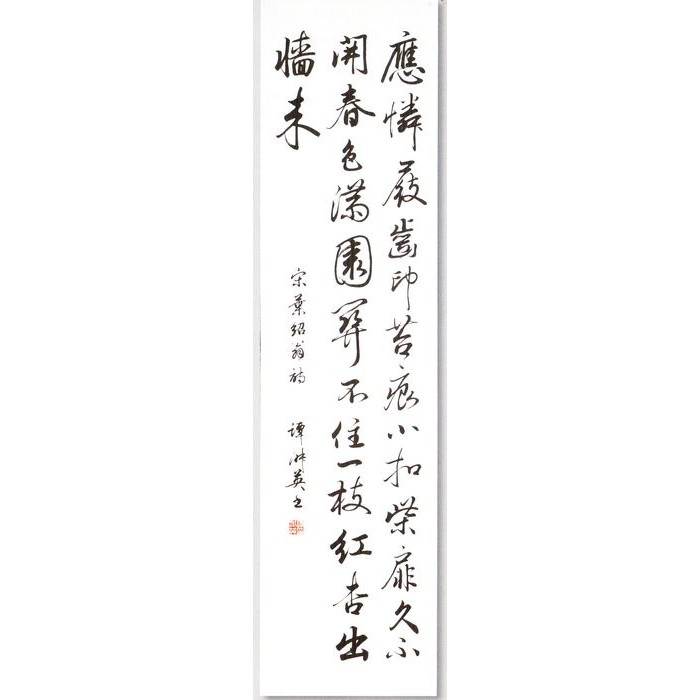 應憐屐齒印苔痕小扣柴扉久不
開春色滿園關不住一枝紅杏出
牆來
宋葉紹翁詩
譚英書